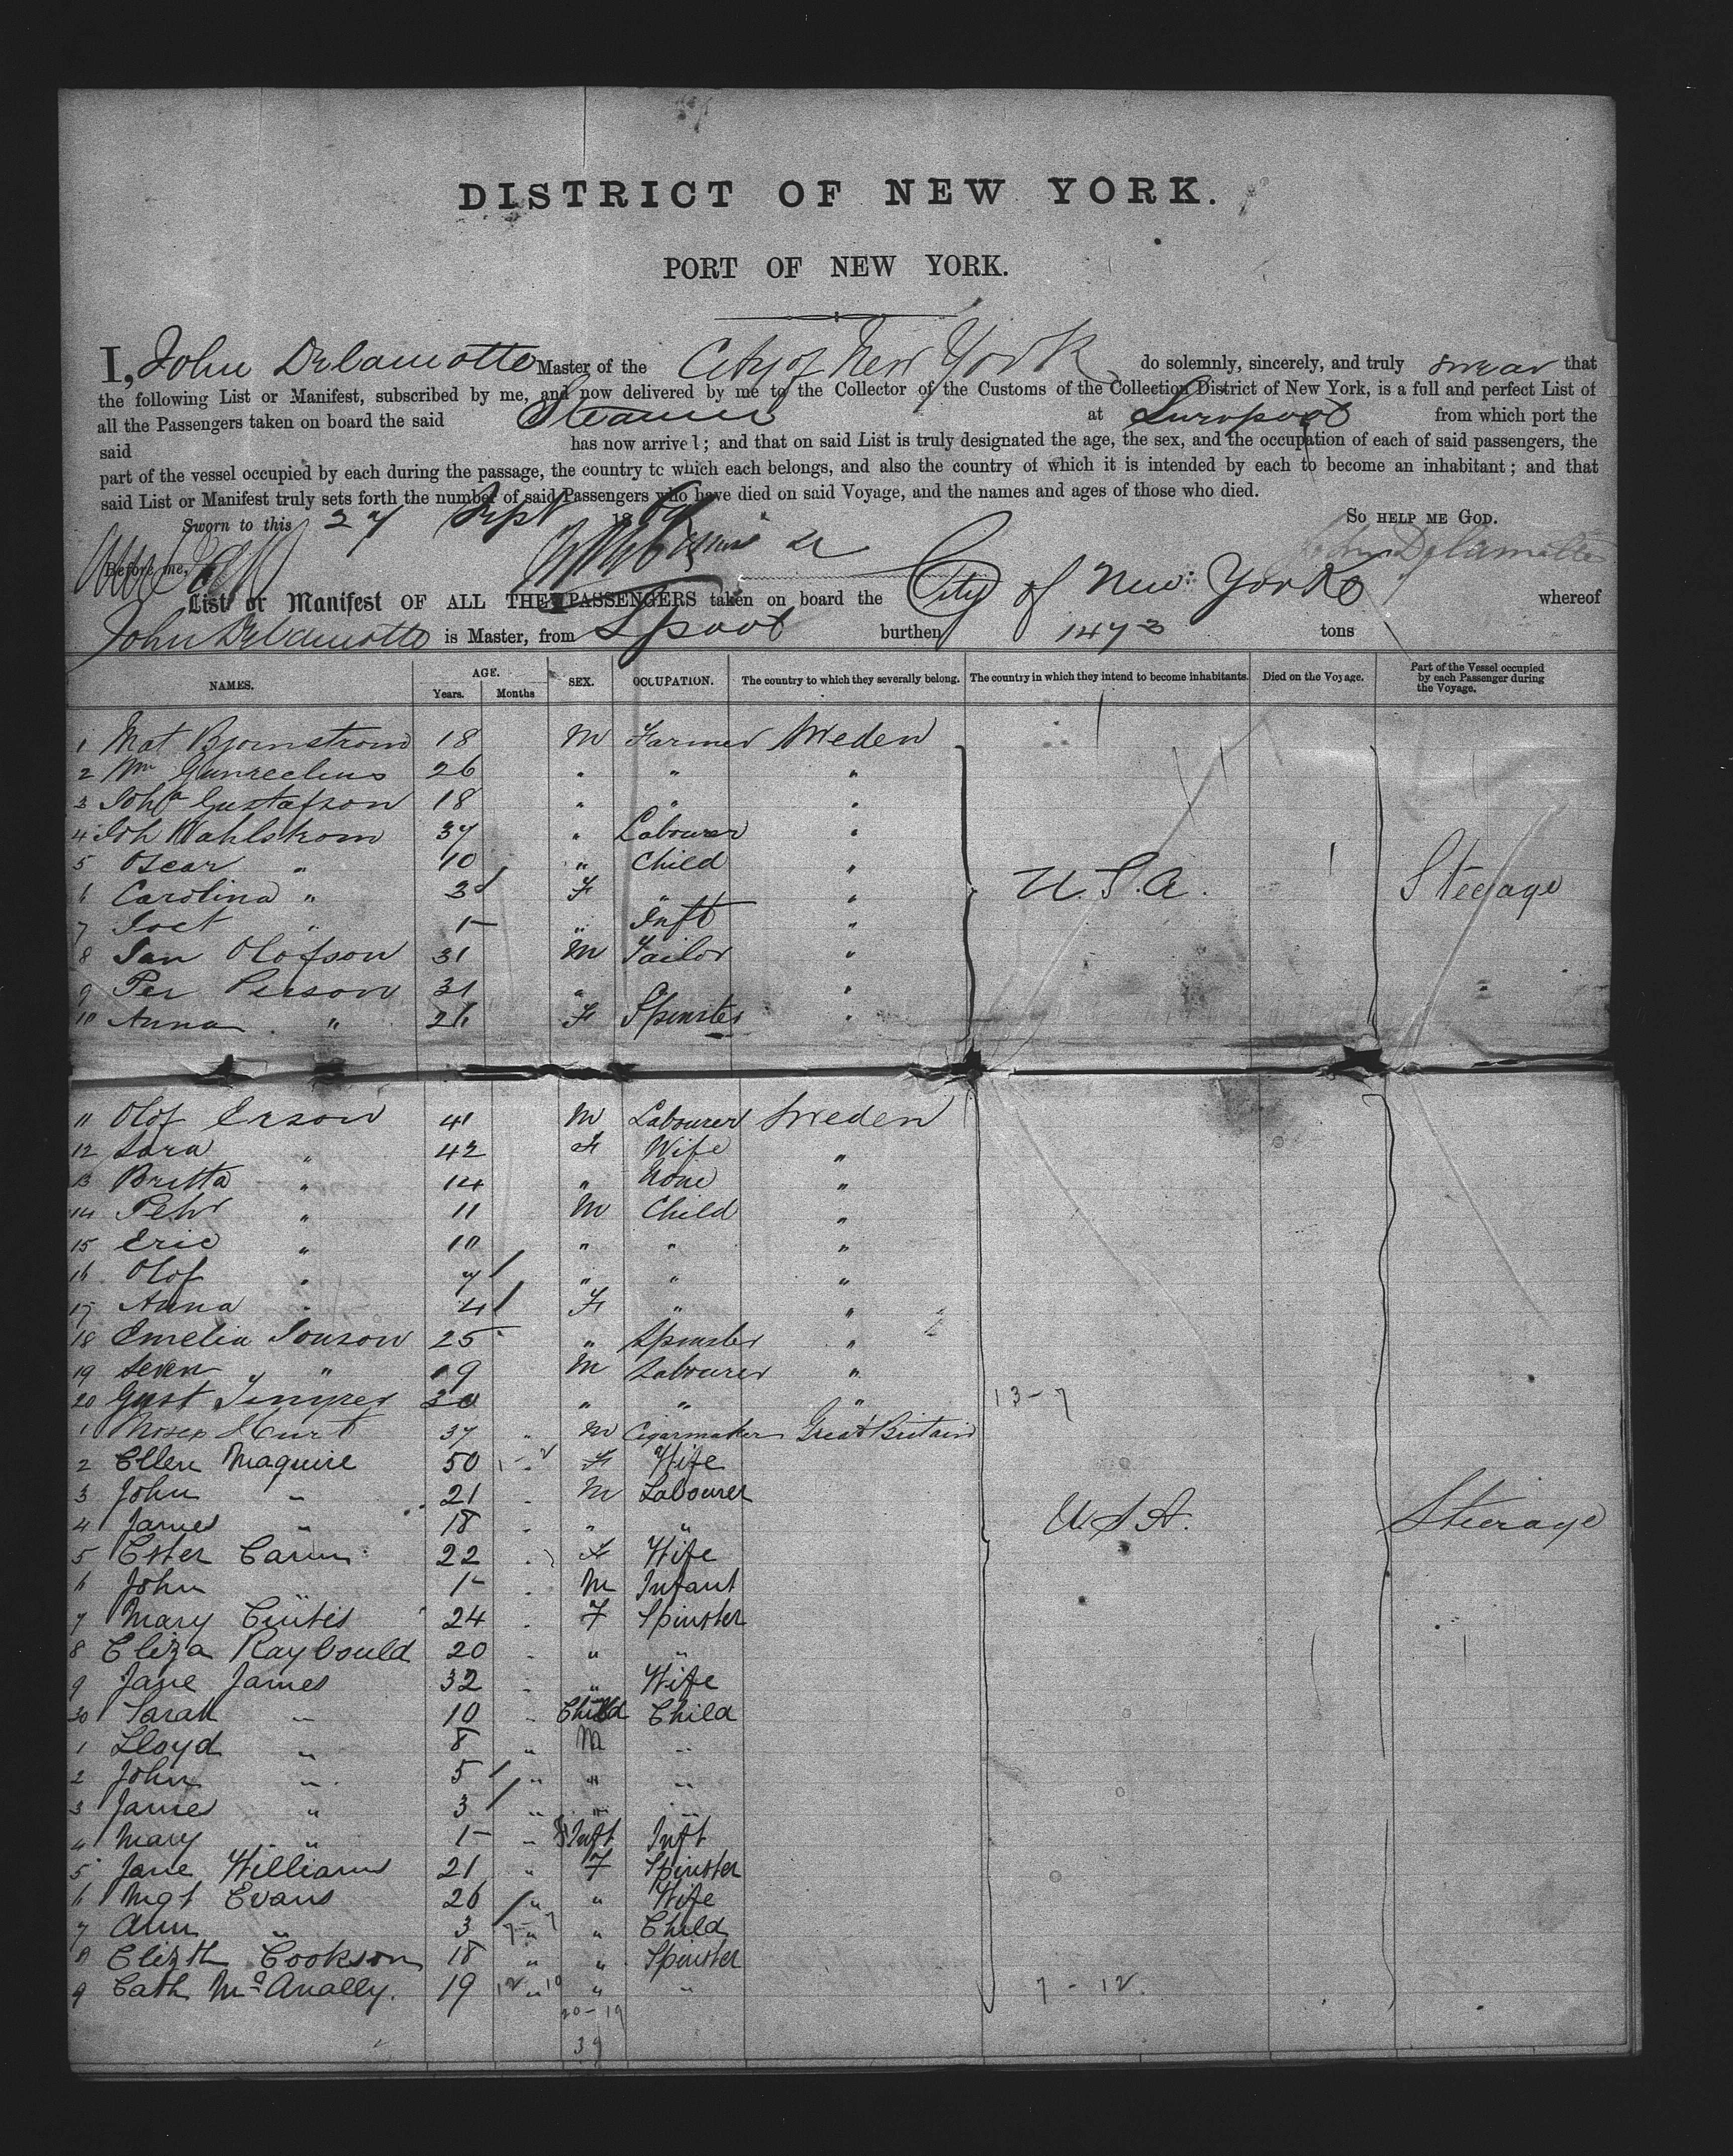 DISTRICT OF NEW YORK.
PORT OF NEW YORK.
I, John Delamotte Master of the City of New York do solemnly, sincerely, and truly swear that
the following List or Manifest, subscribed by me, and now delivered by me to the Collector of the Customs of the Collection District of New York, is a full and perfect List of
all the Passengers taken on board the said Steamer at Liverpool from which port the
said has now arrived; and that on said List is truly designated the age, the sex, and the occupation of each of said passengers, the
part of the vessel occupied by each during the passage, the country to which each belongs, and also the country of which it is intended by each to become an inhabitant; and that
said List or Manifest truly sets forth the number of said Passengers who have died on said Voyage, and the names and ages of those who died.
Sworn to this 27 Sept 186 SO HELP ME GOD.
Before me, John Delamotte
List or Manifest OF ALL THE PASSENGERS taken on board the City of New York whereof
John Delamotte is Master, from Lpool burthen 1473 tons
NAMES. AGE. Years. Months SEX. OCCUPATION. The country to which they severally belong. The country in which they intend to become inhabitants. Died on the Voyage. Part of the Vessel occupied by each Passenger during the Voyage.
1 Mat Bjornstrom 18 M Farmer Sweden
2 Wm 26 " " "
3 Joha Gustafson 18 " " "
4 Joh Wahlstrom 37 " Labourer "
5 Oscar " 10 " Child "
6 Carolina " 3 F " " U.S.A. Steerage
7 " 1 " Inft "
8 Jan Olofson 31 M Tailor "
9 Per Person 31 " " "
10 Anna " 26 F Spinster "
11 Olof Erson 41 M Labourer Sweden
12 Sara " 42 F Wife "
13 Britta " 14 " None "
14 Pehr " 11 M Child "
15 Eric " 10 " " "
16 Olof " 7 " " "
17 Anna " 4 F " "
18 Emelia Jonson 25 " Spinster "
19 Seven " 19 M Labourer "
20 Gust 30 " " " 13-7
1 Moses Hurt 37 " M Cigarmaker Great Britain
2 Ellen Maguire 50 F Wife
3 John " 21 M Labourer
4 James " 18 " " U.S.A. Steerage
5 Ester 22 F Wife
6 John 1 M Infant
7 Mary 24 F Spinster
8 Eliza Raybould 20 " "
9 Jane James 32 " Wife
30 Sarah " 10 Child Child
1 Lloyd " 8 " M "
2 John " 5 " " "
3 James " 3 " " "
4 Mary " 1 " Inft Inft
5 Jane Williams 21 " F Spinster
6 Mgt Evans 26 " " Wife
7 Ann " 3 " " Child
8 Elizth Cookson 18 " " Spinster
9 Cath McAnally. 19 " " " 7-12
20-19
39